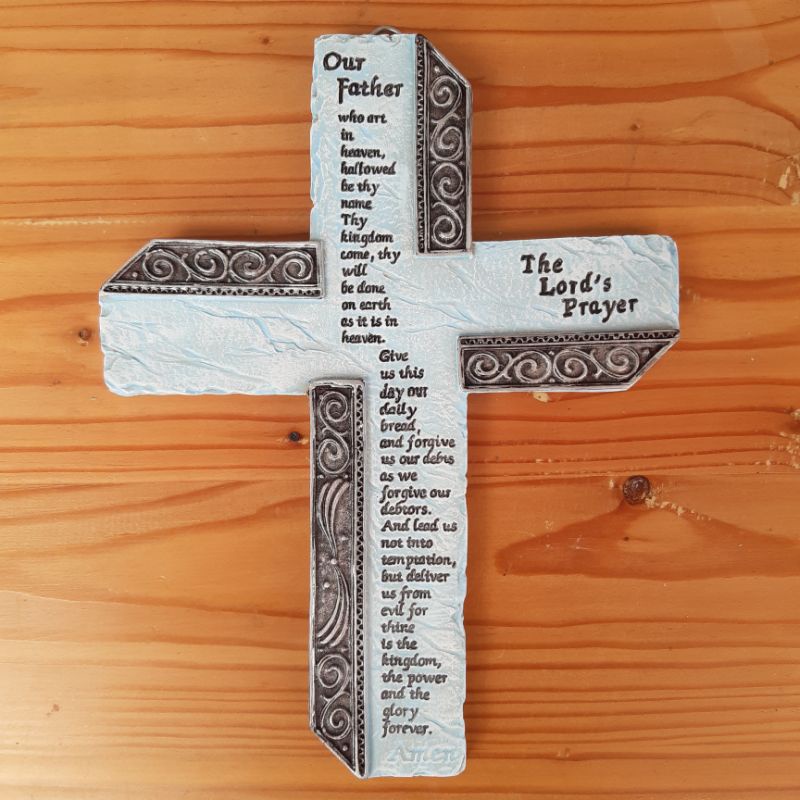 Our
Father
who art
in
heaven,
hallowed
be thy
name
Thy
kingdom
come, thy
will
be done
on earth
as it is in
heaven.
The
Lord's
Prayer
Give
us this
day our
daily
bread,
and forgive
us our debts
as we
forgive our
debtors.
And lead us
not into
temptation,
but deliver
us from
evil for
thine
is the
kingdom,
the power
and the
glory
forever.
Amen